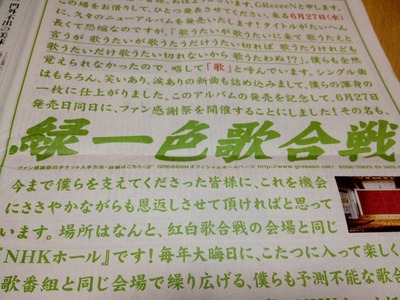 の場をお借りして、
に、久々のニューアルバムを発売いたします
長くて恐縮なのですが、「歌うたいが歌うたいに来て歌うたえと
言うが歌うたいが歌うたうだけうたい切れば歌うたうけれども
歌うたいだけ歌うたい切れないから歌うたわぬ!?」。僕らも全然
覚えられなかったので、略して「歌」と呼んでいます。シングル曲
はもちろん、笑いあり、涙ありの新曲も詰め込みまして、僕らの渾身の
一枚に仕上がりました。このアルバムの発売を記念して、6月27日
発売日同日に、ファン感謝祭を開催することにしました!その名も、
緑一色歌合戦
今まで僕らを支えてくださった皆様に、これを機会
にささやかながらも恩返しさせて頂ければと思って
います。場所はなんと、紅白歌合戦の会場と同じ
『NHKホール』です!毎年大晦日に、こたつに入って楽しく
歌番組と同じ会場で繰り広げる、僕らも予測不能な歌合